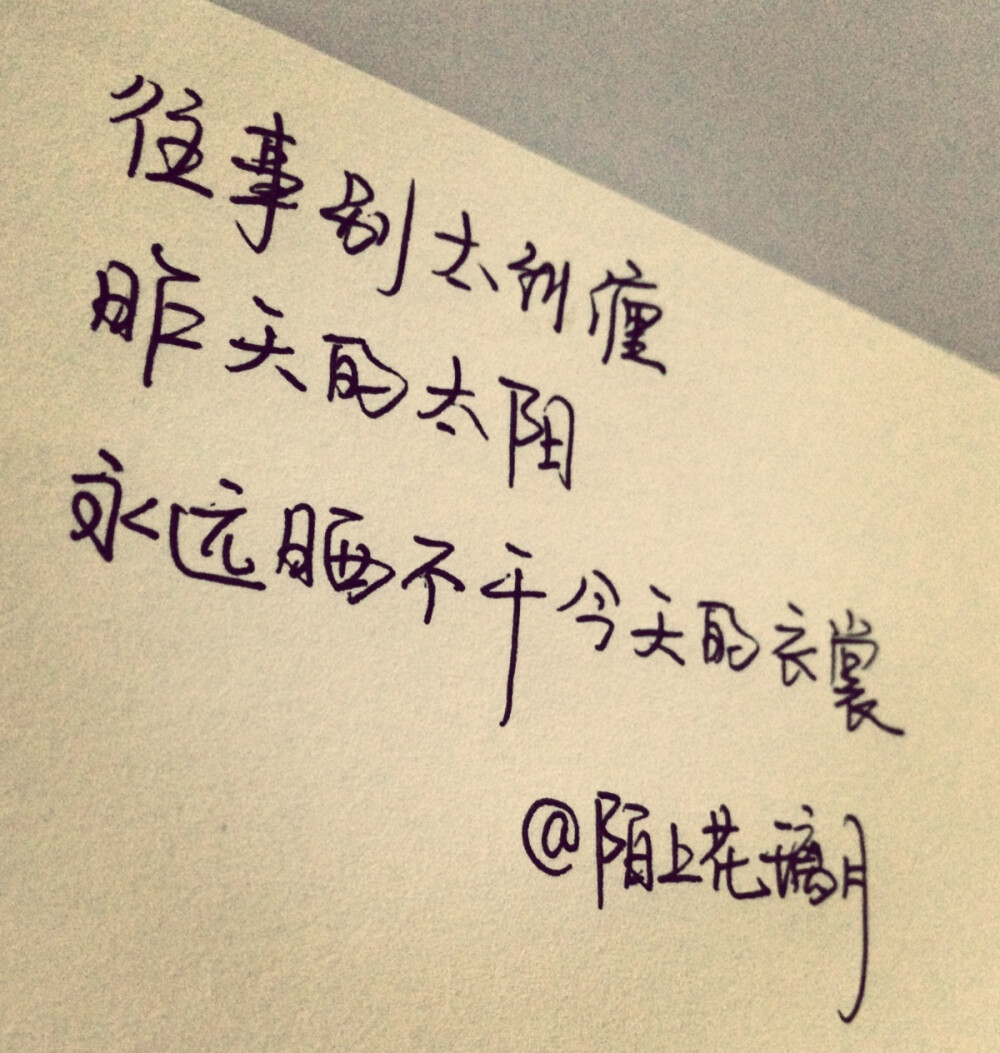 往事别太纠缠
昨天的太阳
永远晒不干今天的衣裳
@陌上花璃月